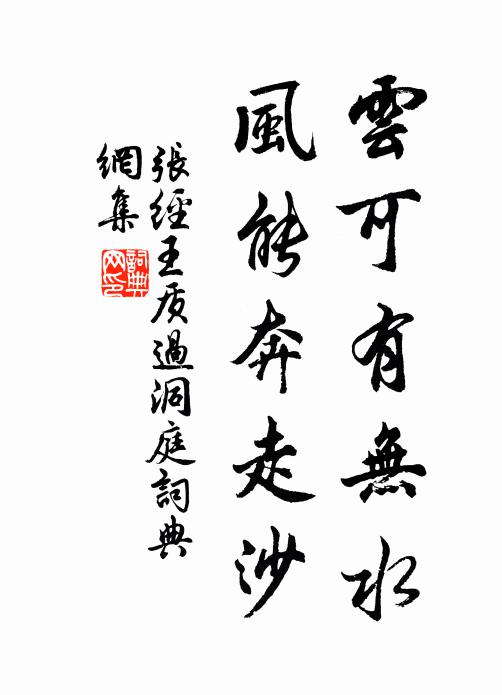 雲可有無水
風能奔走沙
張經王质過洞庭詞典
網集
詞典网印